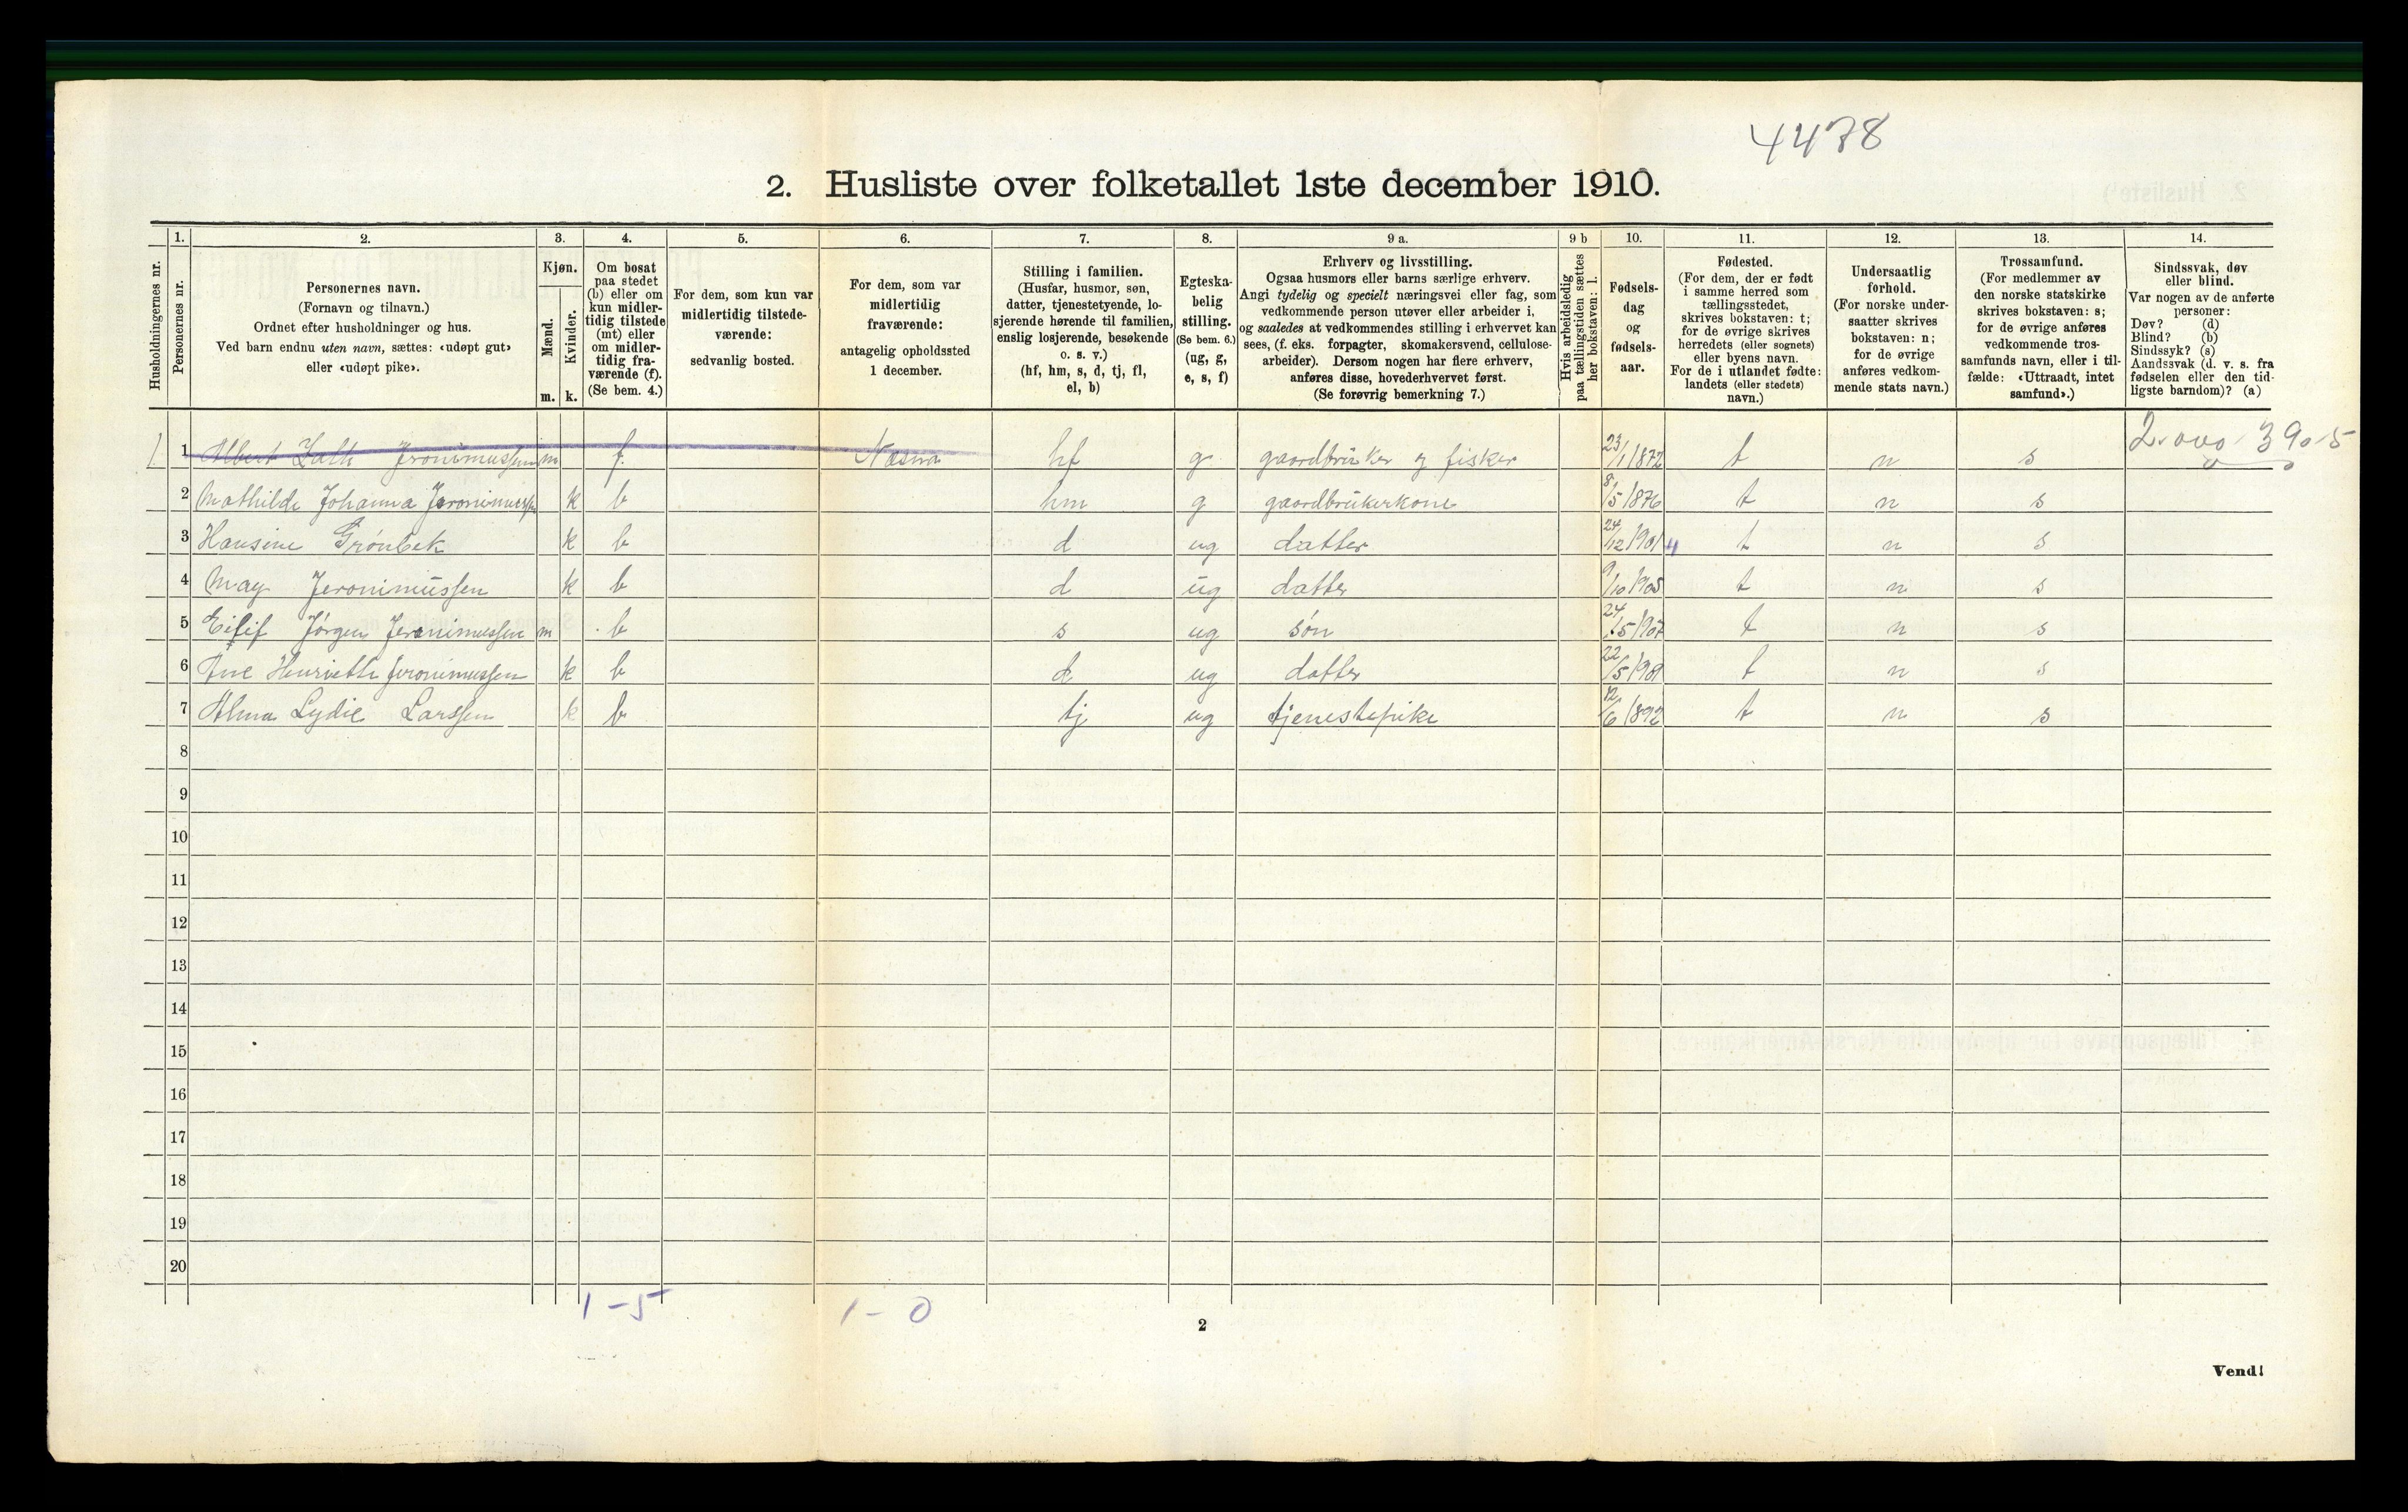 4478
2. Husliste over folketallet 1ste december 1910.
Husholdningernes nr.
1.
Personernes nr.
2.
Personernes navn.
(Fornavn og tilnavn.)
Ordnet efter husholdninger og hus.
Ved barn endnu uten navn, sættes: «udøpt gut»
eller «udøpt pike».
3.
Kjøn.
Mænd.
Kvinder.
m. k.
4.
Om bosat
paa stedet
(b) eller om
kun midler-
tidig tilstede
(mt) eller
om midler-
tidig fra-
værende (f).
(Se bem. 4.)
5.
For dem, som kun var
midlertidig tilstede-
værende:
sedvanlig bosted.
6.
For dem, som var
midlertidig
fraværende:
antagelig opholdssted
1 december.
7.
Stilling i familien.
(Husfar, husmor, søn,
datter, tjenestetyende, lo-
sjerende hørende til familien,
enslig losjerende, besøkende
o. s. v.)
(hf, hm, s, d, tj, fl,
el, b)
8.
Egteska-
belig
stilling.
(Se bem. 6.)
(ug, g,
e, s, f)
9 a.
Erhverv og livsstilling.
Ogsaa husmors eller barns særlige erhverv.
Angi tydelig og specielt næringsvei eller fag, som
vedkommende person utøver eller arbeider i,
og saaledes at vedkommendes stilling i erhvervet kan
sees, (f. eks. forpagter, skomakersvend, cellulose-
arbeider). Dersom nogen har flere erhverv,
anføres disse, hovederhvervet først.
(Se forøvrig bemerkning 7.)
9 b
Hvis arbeidsledig
paa tællingstiden sættes
her bokstaven: l.
10.
Fødsels-
dag
og
fødsels-
aar.
11.
Fødested.
(For dem, der er født
i samme herred som
tællingsstedet,
skrives bokstaven: t;
for de øvrige skrives
herredets (eller sognets)
eller byens navn.
For de i utlandet fødte:
landets (eller stedets)
navn.)
12.
Undersaatlig
forhold.
(For norske under-
saatter skrives
bokstaven: n;
for de øvrige
anføres vedkom-
mende stats navn.)
13.
Trossamfund.
(For medlemmer av
den norske statskirke
skrives bokstaven: s;
for de øvrige anføres
vedkommende tros-
samfunds navn, eller i til-
fælde: «Uttraadt, intet
samfund».)
14.
Sindssvak, døv
eller blind.
Var nogen av de anførte
personer:
Døv? (d)
Blind? (b)
Sindssyk? (s)
Aandssvak (d. v. s. fra
fødselen eller den tid-
ligste barndom)? (a)
1 1 Albert Jeronimussen m f. Næsna hf g gaardbruker og fisker 23/1/872 t n s
2 Mathilde Johanna Jeronimussen k b hm g gaardbrukerkone 8/5/876 t n s
3 Hansine Grönbek k b d ug datter 24/12/901 t n s
4 May Jeronimussen k b d ug datter 9/10/905 t n s
5 Eilif Jörgen Jeronimussen m b s ug sön 24/5/907 t n s
6 Ane Henriette Jeronimussen k b d ug datter 22/5/981 t n s
7 Alma Lydie Larssen k b tj ug tjenestepike 12/6/892 t n s
8
9
10
11
12
13
14
15
16
17
18
19
20
1-5 1-0
2
Vend!